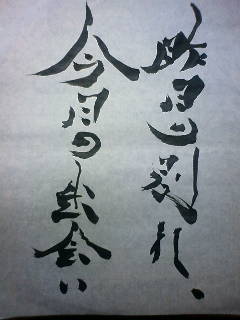 昨日の別れ、
今日の出会い